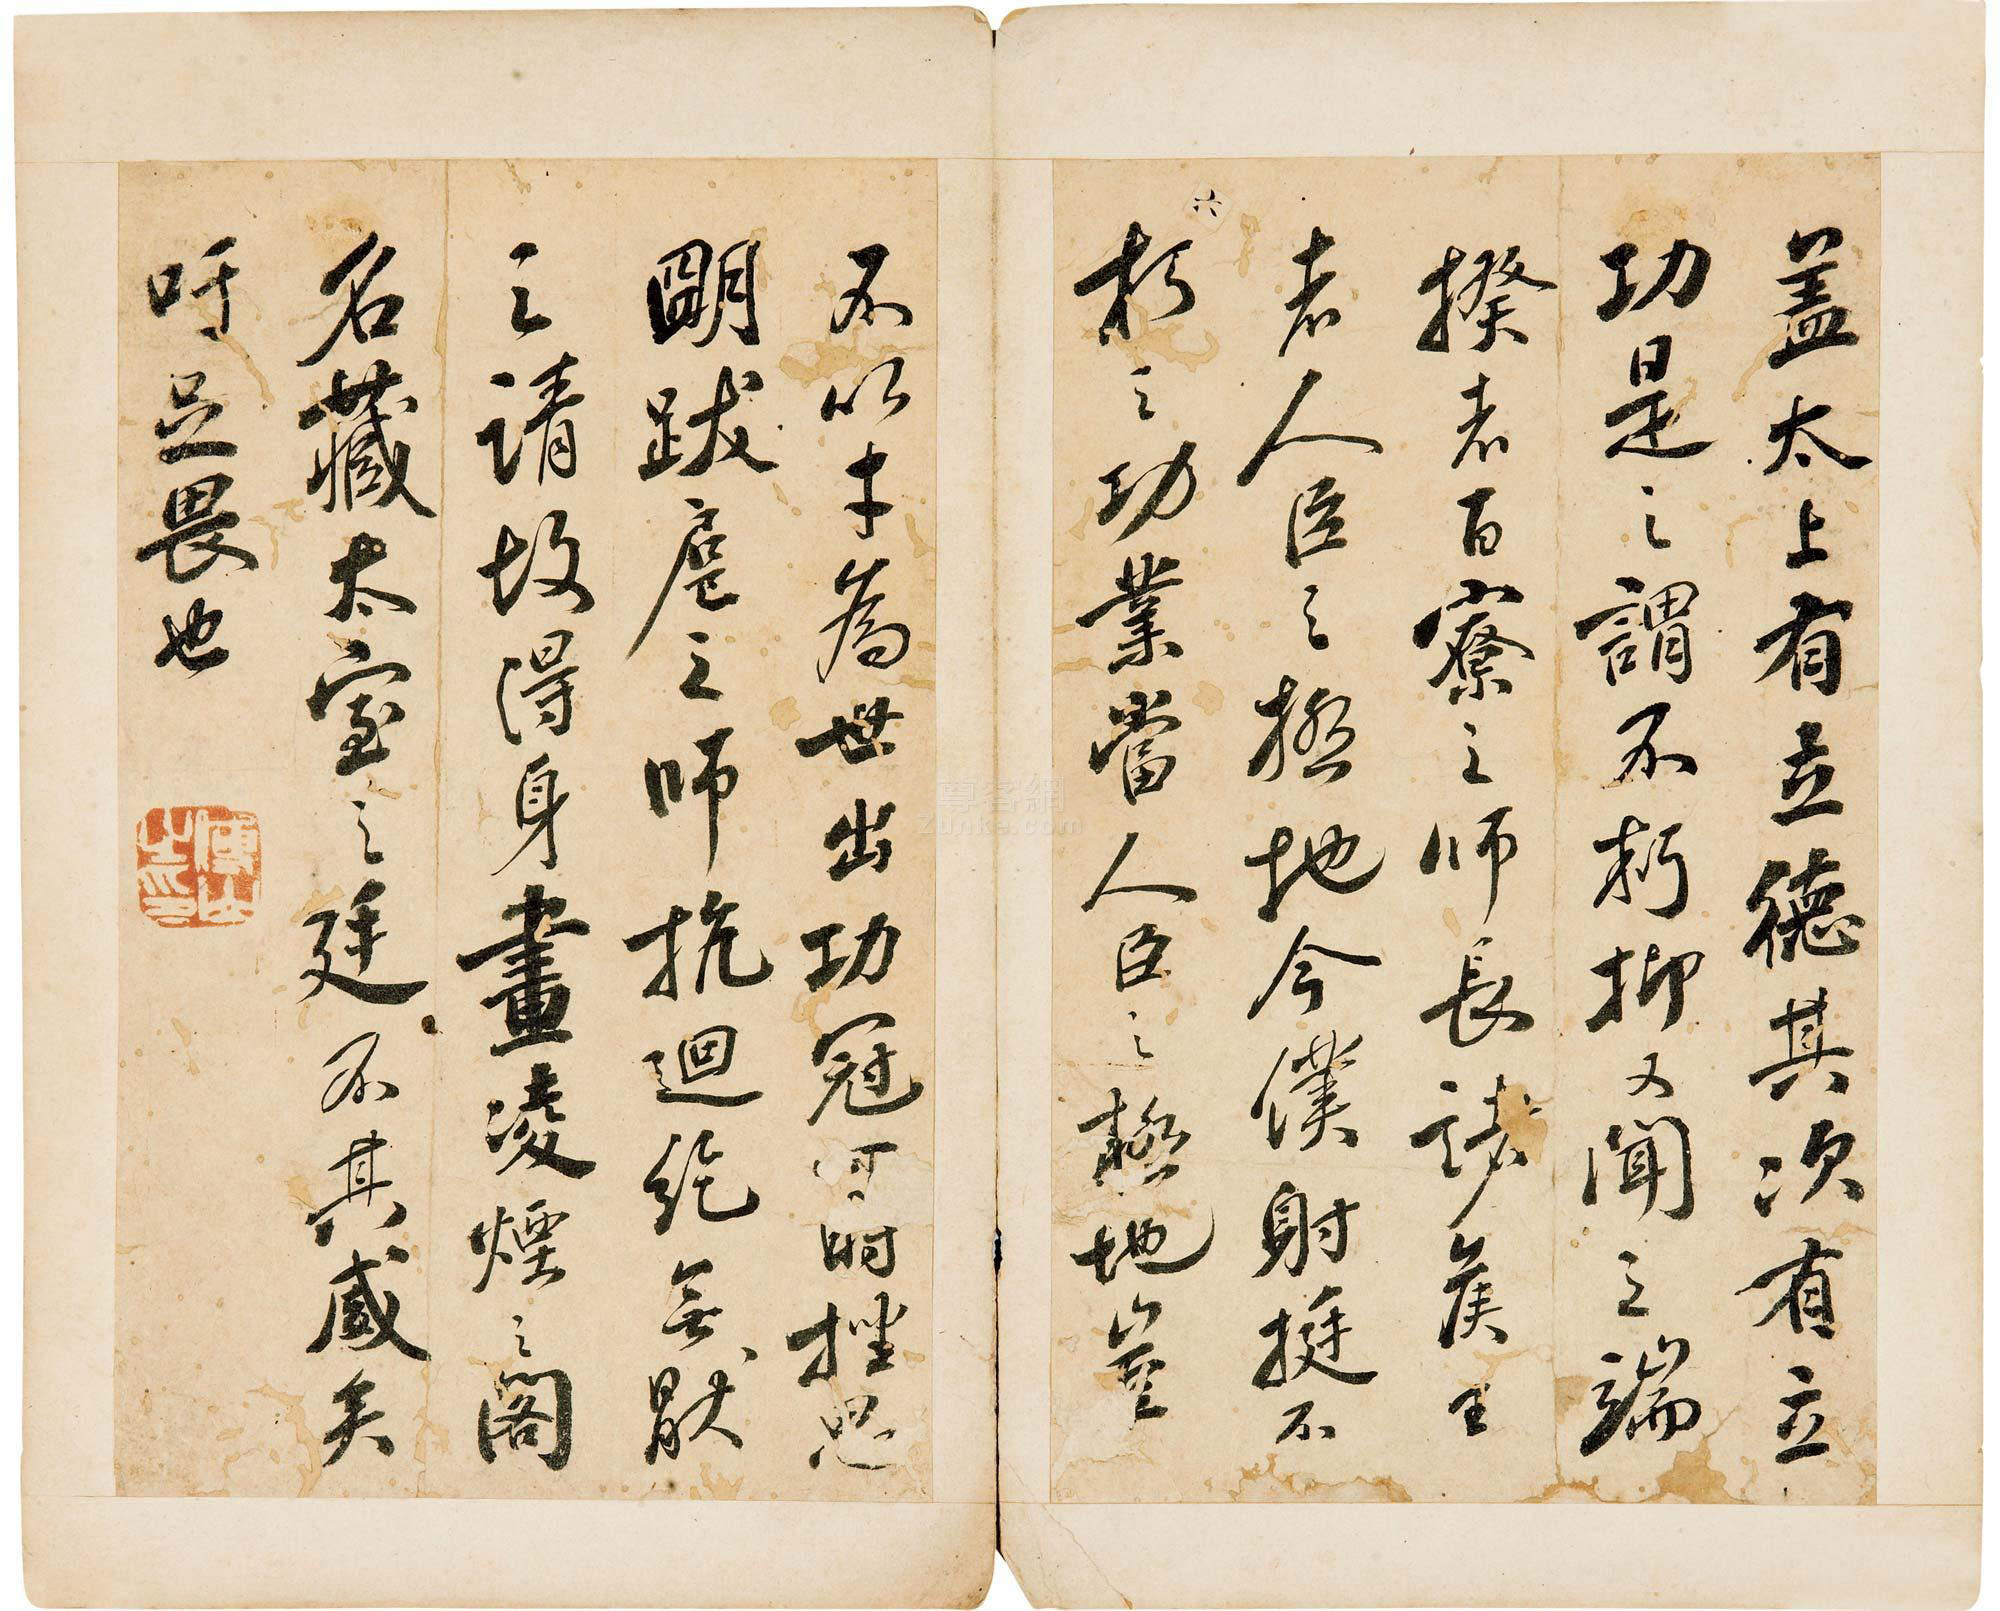 六
盖太上有立德其次有立
功是之謂不朽抑又聞之端
揆者百寮之師長諸侯王
者人臣之極地今僕射挺不
朽之功業當人臣之極地豈
不以才為世出功冠時挫思
朙跋扈之師抗迴紇無猒
之請故得身畫凌煙之閣
名藏太室之廷不其盛矣
吁足畏也
傅山之印
尊客網
zunke.com